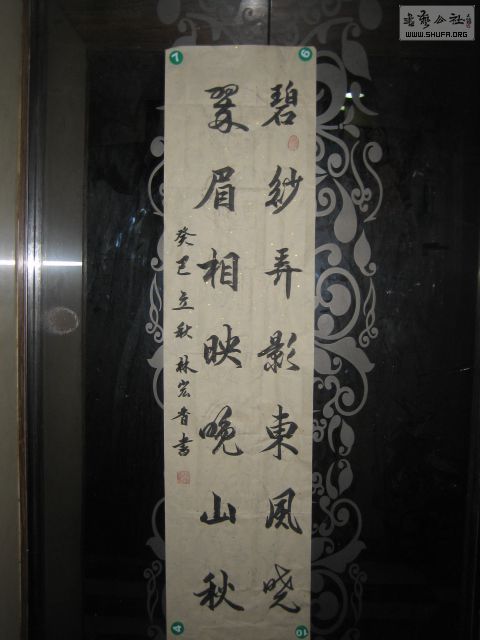 碧纱弄影東風晓
翠眉相映晚山秋
癸巳立秋林宏香書
書藝公社
WWW.SHUFA.ORG
7
6
4
10